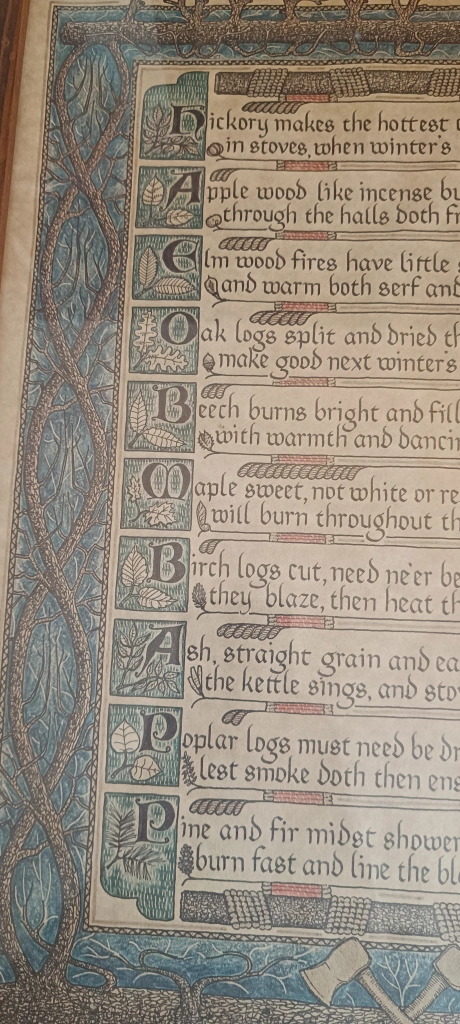 Hickory makes the hottest
in stoves, when winter's
Apple wood like incense bu
through the halls doth fr
Elm wood fires have little
and warm both serf and
Oak logs split and dried th
make good next winter's
Beech burns bright and fill
with warmth and dancin
Maple sweet, not white or re
will burn throughout th
Birch logs cut, need ne'er be
they blaze, then heat th
Ash, straight grain and ea
the kettle sings, and sto
Poplar logs must need be dr
lest smoke doth then ens
Pine and fir midst shower
burn fast and line the bl